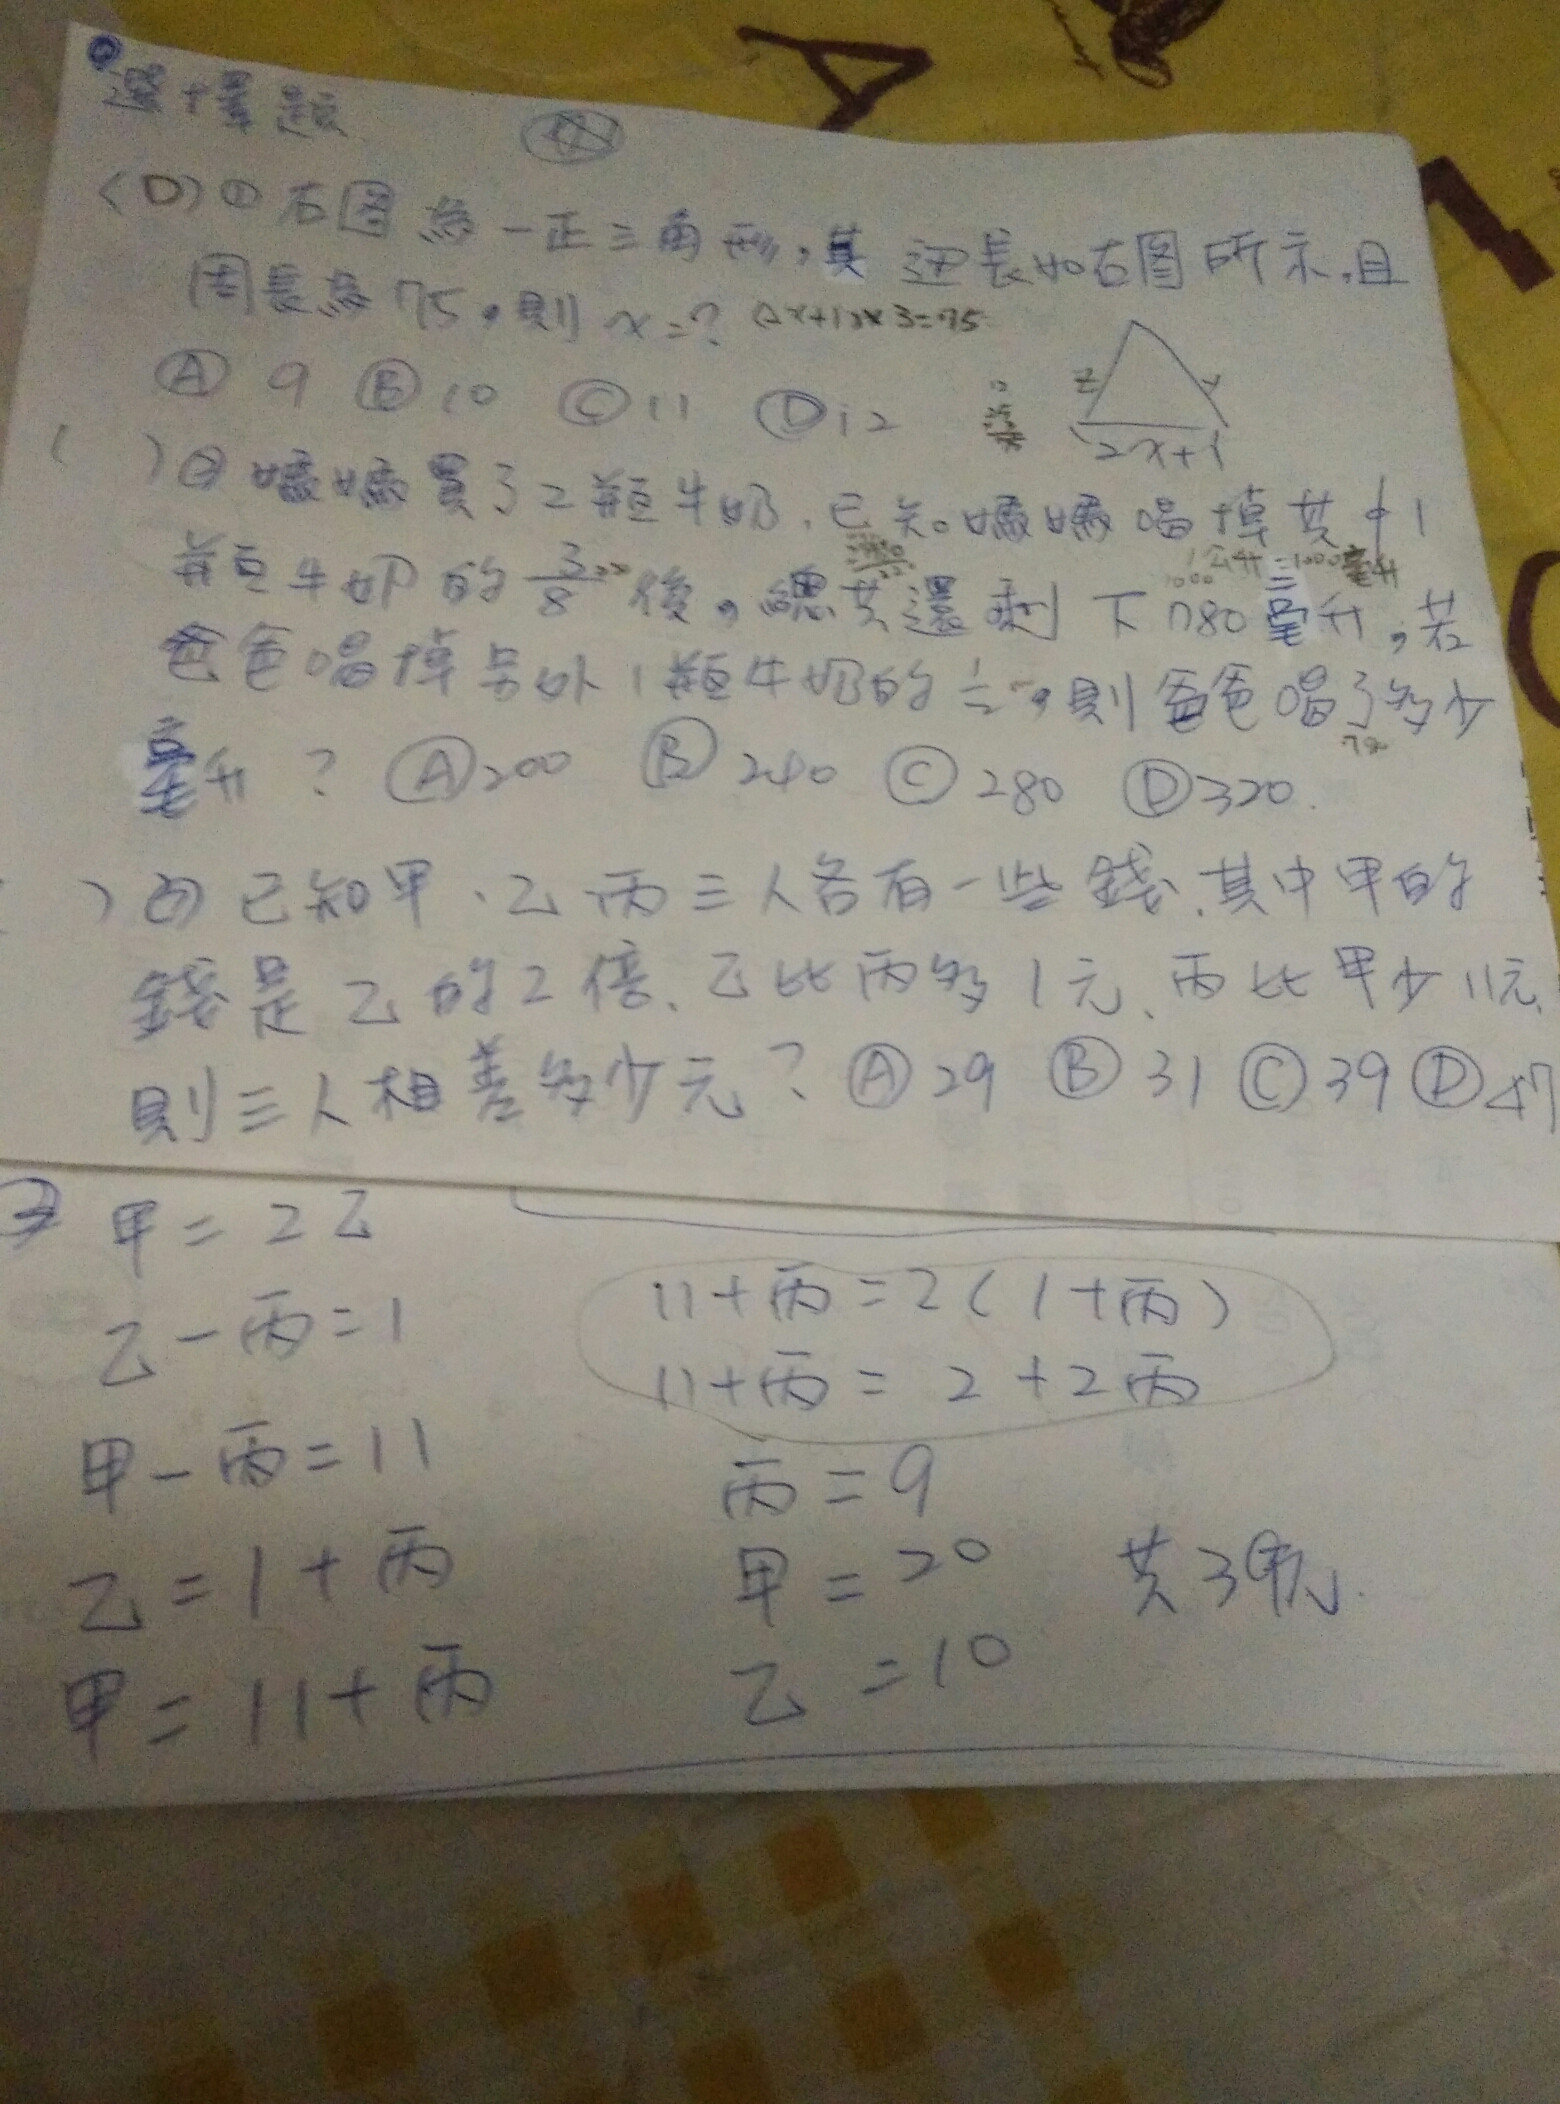 選擇題
(D)① 右图為一正三角形,其边長如右图所示,且
周長為75,則x=? (2x+1)×3=75
Ⓐ 9 Ⓑ 10 Ⓒ 11 Ⓓ 12
2x+1
( )② 媽媽買了2瓶牛奶,已知媽媽喝掉其中1
1公升=1000毫升
瓶牛奶的3/8後,總共還剩下780毫升,若
爸爸喝掉另外1瓶牛奶的1/2,則爸爸喝了多少
毫升? Ⓐ200 Ⓑ240 Ⓒ280 Ⓓ320.
( )③ 已知甲、乙、丙三人各有一些錢,其中甲的
錢是乙的2倍、乙比丙多1元、丙比甲少11元,
則三人相差多少元? Ⓐ29 Ⓑ31 Ⓒ39 Ⓓ47
③ 甲=2乙
乙-丙=1
甲-丙=11
乙=1+丙
甲=11+丙
11+丙=2(1+丙)
11+丙=2+2丙
丙=9
甲=20
乙=10
共39元.